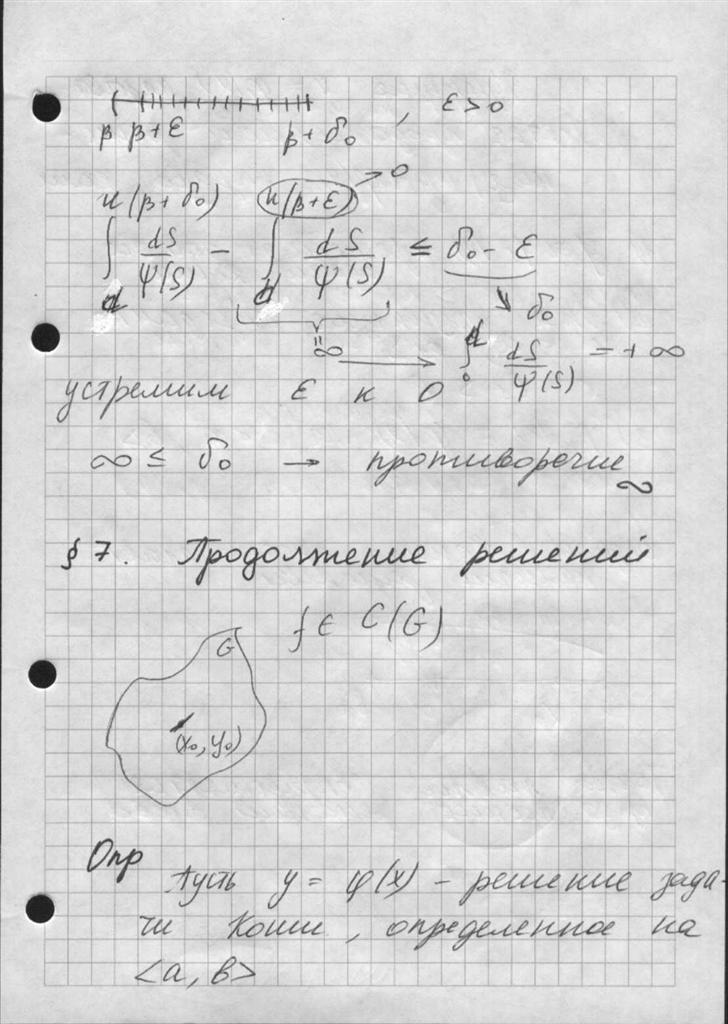 β β+ε β+δ₀ , ε>0
∫_d^{u(β+δ₀)} dS/ψ(S) − ∫_d^{u(β+ε)→0} dS/ψ(S) ≤ δ₀ − ε
↘ δ₀
∞ → ∫_0^d dS/ψ(S) = +∞
устремим ε к 0
∞ ≤ δ₀ → противоречие
§ 7. Продолжение решений
f ∈ C(G)
G
(x₀, y₀)
Опр
Пусть y = φ(x) – решение зада-
чи Коши, определенное на
<a, b>